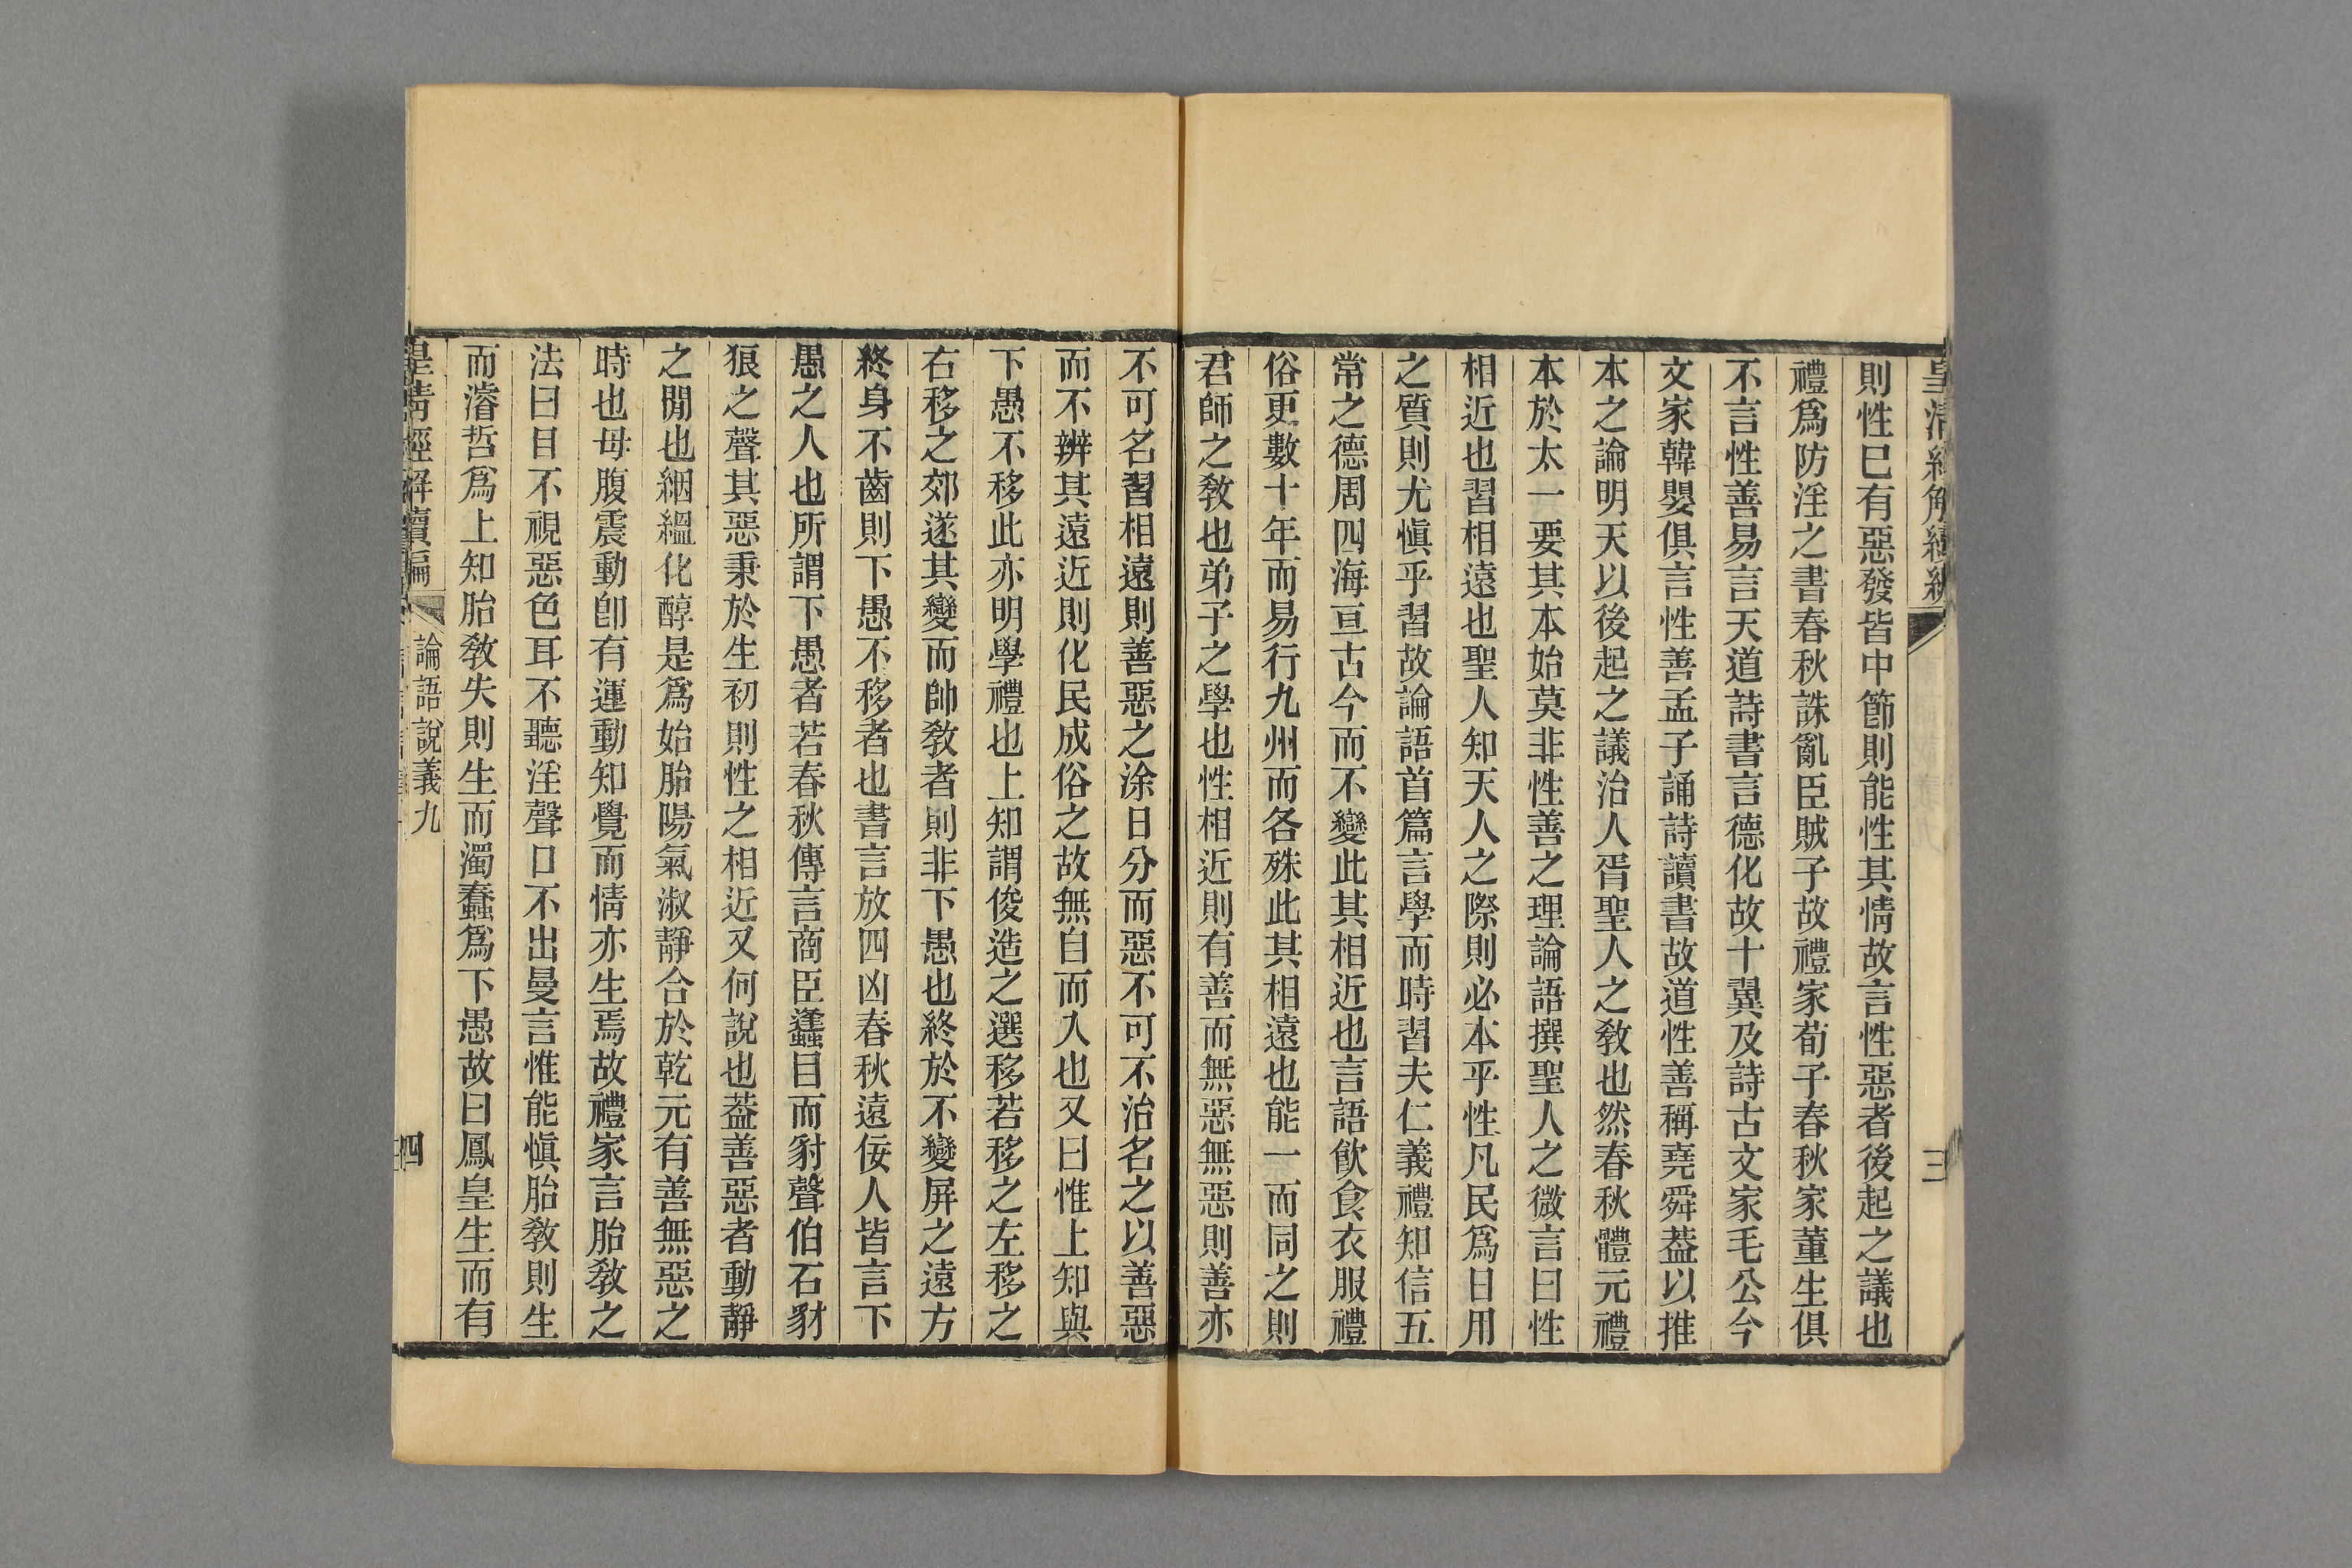 皇清經解續編
三
則性巳有惡發皆中節則能性其情故言性惡者後起之議也
禮爲防淫之書春秋誅亂臣賊子故禮家荀子春秋家董生俱
不言性善易言天道詩書言德化故十翼及詩古文家毛公今
文家韓嬰俱言性善孟子誦詩讀書故道性善稱堯舜葢以推
本之論明天以後起之議治人胥聖人之敎也然春秋體元禮
本於太一要其本始莫非性善之理論語撰聖人之微言曰性
相近也習相遠也聖人知天人之際則必本乎性凡民爲日用
之質則尤愼乎習故論語首篇言學而時習夫仁義禮知信五
常之德周四海亘古今而不變此其相近也言語飮食衣服禮
俗更數十年而易行九州而各殊此其相遠也能一而同之則
君師之敎也弟子之學也性相近則有善而無惡無惡則善亦
不可名習相遠則善惡之涂日分而惡不可不治名之以善惡
而不辨其遠近則化民成俗之故無自而入也又曰惟上知與
下愚不移此亦明學禮也上知謂俊造之選移若移之左移之
右移之郊遂其變而帥敎者則非下愚也終於不變屏之遠方
終身不齒則下愚不移者也書言放四凶春秋遠佞人皆言下
愚之人也所謂下愚者若春秋傳言商臣蠭目而豺聲伯石豺
狼之聲其惡秉於生初則性之相近又何說也葢善惡者動靜
之閒也絪縕化醇是爲始胎陽氣淑靜合於乾元有善無惡之
時也母腹震動卽有運動知覺而情亦生焉故禮家言胎敎之
法曰目不視惡色耳不聽淫聲口不出曼言惟能愼胎敎則生
而濬哲爲上知胎敎失則生而濁蠢爲下愚故曰鳳皇生而有
皇清經解續編
論語說義九
四